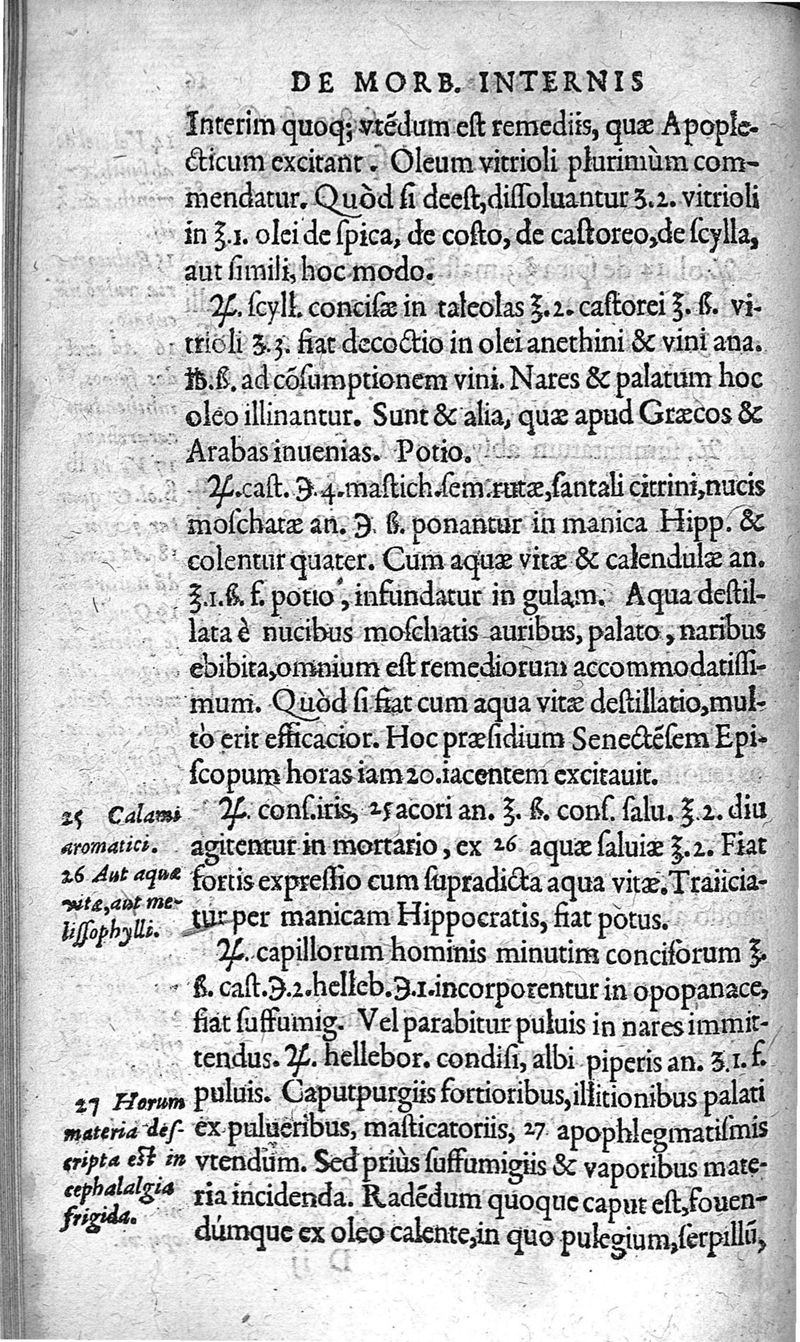 DE MORB. INTERNIS
Interim quoq; vtẽdum est remediis, quæ Apople-
cticum excitant. Oleum vitrioli plurimùm com-
mendatur. Quòd si deest, dissoluantur ʒ.2. vitrioli
in ℥.1. olei de spica, de costo, de castoreo, de scylla,
aut simili, hoc modo.
℞. scyll. concisæ in taleolas ℥.2. castorei ℥.ß. vi-
trioli ʒ.3. fiat decoctio in olei anethini & vini ana.
℔.ß. ad cõsumptionem vini. Nares & palatum hoc
oleo illinantur. Sunt & alia, quæ apud Græcos &
Arabas inuenias. Potio.
℞. cast. ℈.4. mastich. sem. rutæ, santali citrini, nucis
moschatæ an. ℈ ß. ponantur in manica Hipp. &
colentur quater. Cum aquæ vitæ & calendulæ an.
℥.1.ß. f. potio, infundatur in gulam. Aqua destil-
lata è nucibus moschatis auribus, palato, naribus
ebibita, omnium est remediorum accommodatissi-
mum. Quòd si fiat cum aqua vitæ destillatio, mul-
tò erit efficacior. Hoc præsidium Senectẽsem Epi-
scopum horas iam 20. iacentem excitauit.
℞. cons. iris, 25 acori an. ℥. ß. cons. salu. ℥.2. diu
agitentur in mortario, ex 26 aquæ saluiæ ℥.2. Fiat
fortis expressio cum supradicta aqua vitæ. Traiicia-
tur per manicam Hippocratis, fiat potus.
℞. capillorum hominis minutim conciforum ℥.
ß. cast. ℈.2. helleb. ℈.1. incorporentur in opopanace,
fiat suffumig. Vel parabitur puluis in nares immit-
tendus. ℞. hellebor. condisi, albi piperis an. ʒ.1. f.
puluis. Caputpurgiis fortioribus, illitionibus palati
ex pulueribus, masticatoriis, 27 apophlegmatismis
vtendum. Sed priùs suffumigiis & vaporibus mate-
ria incidenda. Radẽdum quoque caput est, fouen-
dúmque ex oleo calente, in quo pulegium, serpillũ,
25 Calami
aromatici.
26 Aut aquæ
vitæ, aut me-
lissophylli.
27 Horum
materia des-
cripta est in
cephalalgia
frigida.